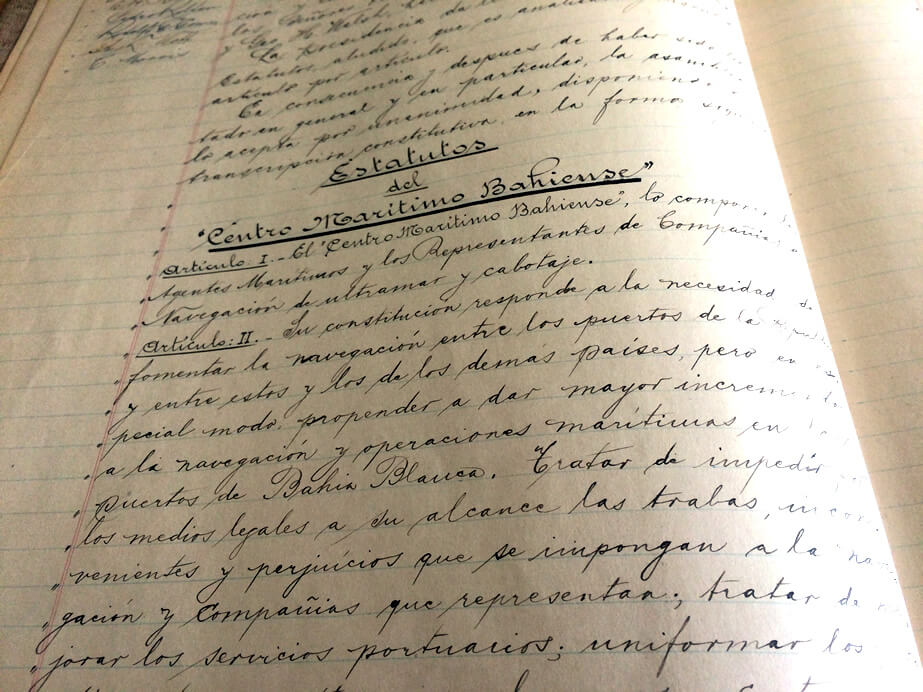 ción y
las
y Geo. H. Walsh,
La presidencia da
Estatutos aludido, que es analizado
artículo por artículo.
En consecuencia y despues de haber sido
tado en general y en particular, la asam
lo acepta por unanimidad, disponiendo
transcripción constitutiva, en la forma
Estatutos
del
"Centro Marítimo Bahiense"
Artículo: I.- El "Centro Marítimo Bahiense", lo compon
Agentes Marítimos y los Representantes de Compañías
Navegación de ultramar y cabotaje.
Artículo: II.- Su constitución responde a la necesidad de
fomentar la navegación entre los puertos de la
y entre estos y los de los demás países, pero en es
pecial modo, propender a dar mayor incremento
a la navegación y operaciones marítimas en
puertos de Bahía Blanca. Tratar de impedir por
los medios legales a su alcance las trabas, incon
venientes y perjuicios que se impongan a la nav
gación y Compañias que representan; tratar de
jorar los servicios portuarios; uniformar los